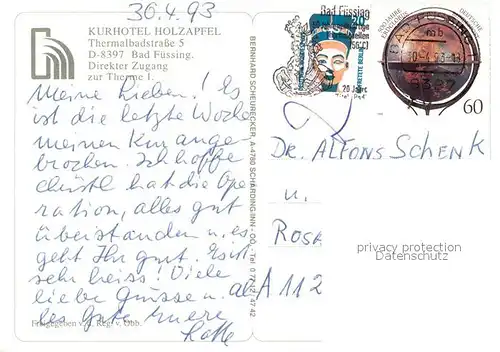 30.4.93
KURHOTEL HOLZAPFEL
Thermalbadstraße 5
D-8397 Bad Füssing.
Direkter Zugang
zur Therme I.
Meine Lieben! Es
ist die letzte Woche
meiner Kur ange
brochen. Ich hoffe
Christl hat die Ope
ration, alles gut
überstanden u. es
geht Ihr gut. Es ist
sehr heiss! Viele
liebe Grüsse u. al
les Gute Eure
Freigegeben v. d. Reg. v. Obb.
BERNHARD SCHEURECKER, A-4780 SCHÄRDING/INN - OÖ., Tel. 0 77 12 / 47 42
Bad Füssing
20 Jahre
20
60
DR. ALFONS SCHENK
u.
ROSA
A 112
privacy protection
Datenschutz